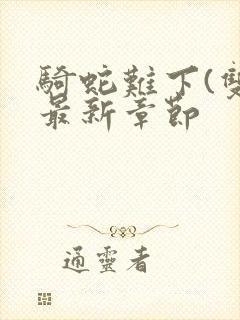 騎蛇難下(雙
最新章節
通靈者